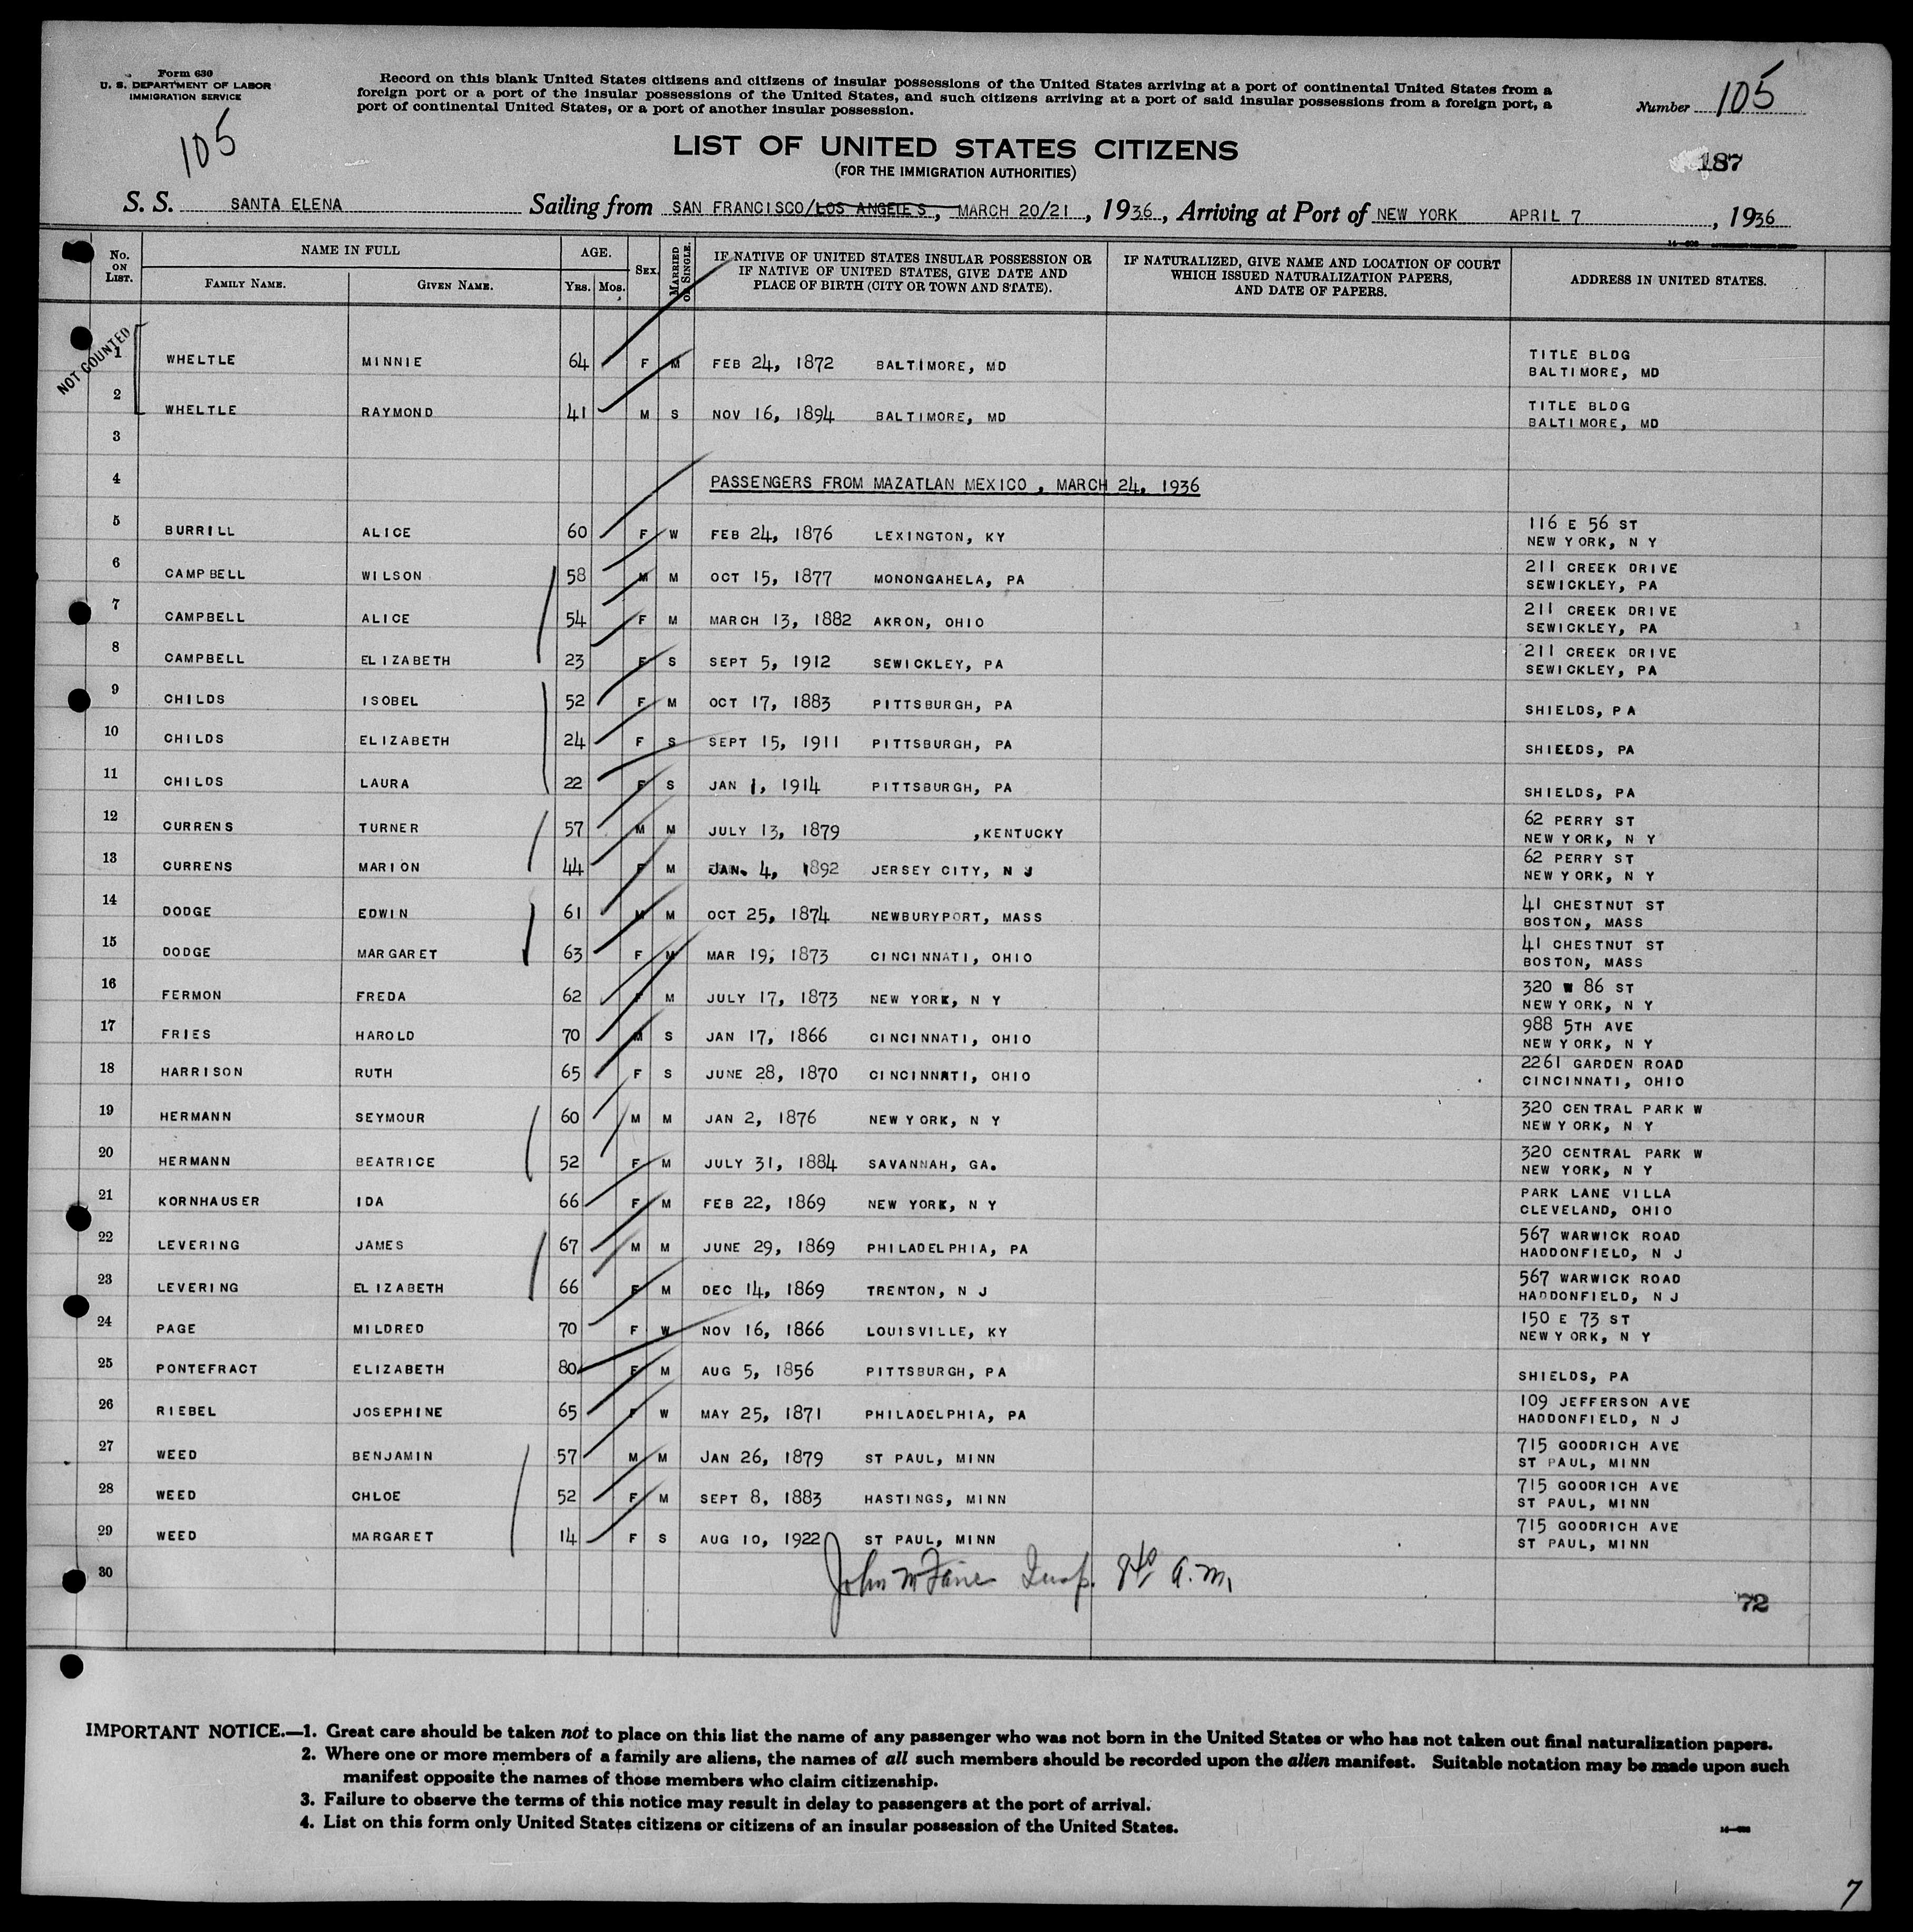 Form 630
U. S. DEPARTMENT OF LABOR
IMMIGRATION SERVICE
Record on this blank United States citizens and citizens of insular possessions of the United States arriving at a port of continental United States from a
foreign port or a port of the insular possessions of the United States, and such citizens arriving at a port of said insular possessions from a foreign port, a
port of continental United States, or a port of another insular possession.
Number 105
105
LIST OF UNITED STATES CITIZENS
(FOR THE IMMIGRATION AUTHORITIES)
187
S. S. SANTA ELENA Sailing from SAN FRANCISCO/LOS ANGELES, MARCH 20/21, 1936, Arriving at Port of NEW YORK APRIL 7, 1936
No. ON LIST. NAME IN FULL AGE. SEX. MARRIED OR SINGLE. IF NATIVE OF UNITED STATES INSULAR POSSESSION OR IF NATIVE OF UNITED STATES, GIVE DATE AND PLACE OF BIRTH (CITY OR TOWN AND STATE). IF NATURALIZED, GIVE NAME AND LOCATION OF COURT WHICH ISSUED NATURALIZATION PAPERS, AND DATE OF PAPERS. ADDRESS IN UNITED STATES.
FAMILY NAME. GIVEN NAME. YRS. MOS.
NOT COUNTED
1 WHELTLE MINNIE 64 F M FEB 24, 1872 BALTIMORE, MD TITLE BLDG BALTIMORE, MD
2 WHELTLE RAYMOND 41 M S NOV 16, 1894 BALTIMORE, MD TITLE BLDG BALTIMORE, MD
3
4 PASSENGERS FROM MAZATLAN MEXICO , MARCH 24, 1936
5 BURRILL ALICE 60 F W FEB 24, 1876 LEXINGTON, KY 116 E 56 ST NEW YORK, N Y
6 CAMPBELL WILSON 58 M M OCT 15, 1877 MONONGAHELA, PA 211 CREEK DRIVE SEWICKLEY, PA
7 CAMPBELL ALICE 54 F M MARCH 13, 1882 AKRON, OHIO 211 CREEK DRIVE SEWICKLEY, PA
8 CAMPBELL ELIZABETH 23 F S SEPT 5, 1912 SEWICKLEY, PA 211 CREEK DRIVE SEWICKLEY, PA
9 CHILDS ISOBEL 52 F M OCT 17, 1883 PITTSBURGH, PA SHIELDS, PA
10 CHILDS ELIZABETH 24 F S SEPT 15, 1911 PITTSBURGH, PA SHIEEDS, PA
11 CHILDS LAURA 22 F S JAN 1, 1914 PITTSBURGH, PA SHIELDS, PA
12 CURRENS TURNER 57 M M JULY 13, 1879 ,KENTUCKY 62 PERRY ST NEW YORK, N Y
13 CURRENS MARION 44 F M JAN. 4, 1892 JERSEY CITY, N J 62 PERRY ST NEW YORK, N Y
14 DODGE EDWIN 61 M M OCT 25, 1874 NEWBURYPORT, MASS 41 CHESTNUT ST BOSTON, MASS
15 DODGE MARGARET 63 F M MAR 19, 1873 CINCINNATI, OHIO 41 CHESTNUT ST BOSTON, MASS
16 FERMON FREDA 62 F M JULY 17, 1873 NEW YORK, N Y 320 W 86 ST NEW YORK, N Y
17 FRIES HAROLD 70 M S JAN 17, 1866 CINCINNATI, OHIO 988 5TH AVE NEW YORK, N Y
18 HARRISON RUTH 65 F S JUNE 28, 1870 CINCINNATI, OHIO 2261 GARDEN ROAD CINCINNATI, OHIO
19 HERMANN SEYMOUR 60 M M JAN 2, 1876 NEW YORK, N Y 320 CENTRAL PARK W NEW YORK, N Y
20 HERMANN BEATRICE 52 F M JULY 31, 1884 SAVANNAH, GA. 320 CENTRAL PARK W NEW YORK, N Y
21 KORNHAUSER IDA 66 F M FEB 22, 1869 NEW YORK, N Y PARK LANE VILLA CLEVELAND, OHIO
22 LEVERING JAMES 67 M M JUNE 29, 1869 PHILADELPHIA, PA 567 WARWICK ROAD HADDONFIELD, N J
23 LEVERING ELIZABETH 66 F M DEC 14, 1869 TRENTON, N J 567 WARWICK ROAD HADDONFIELD, N J
24 PAGE MILDRED 70 F W NOV 16, 1866 LOUISVILLE, KY 150 E 73 ST NEW YORK, N Y
25 PONTEFRACT ELIZABETH 80 F M AUG 5, 1856 PITTSBURGH, PA SHIELDS, PA
26 RIEBEL JOSEPHINE 65 F W MAY 25, 1871 PHILADELPHIA, PA 109 JEFFERSON AVE HADDONFIELD, N J
27 WEED BENJAMIN 57 M M JAN 26, 1879 ST PAUL, MINN 715 GOODRICH AVE ST PAUL, MINN
28 WEED CHLOE 52 F M SEPT 8, 1883 HASTINGS, MINN 715 GOODRICH AVE ST PAUL, MINN
29 WEED MARGARET 14 F S AUG 10, 1922 ST PAUL, MINN 715 GOODRICH AVE ST PAUL, MINN
30 John Insp. a.m.
72
IMPORTANT NOTICE.—1. Great care should be taken not to place on this list the name of any passenger who was not born in the United States or who has not taken out final naturalization papers.
2. Where one or more members of a family are aliens, the names of all such members should be recorded upon the alien manifest. Suitable notation may be made upon such
manifest opposite the names of those members who claim citizenship.
3. Failure to observe the terms of this notice may result in delay to passengers at the port of arrival.
4. List on this form only United States citizens or citizens of an insular possession of the United States.
7